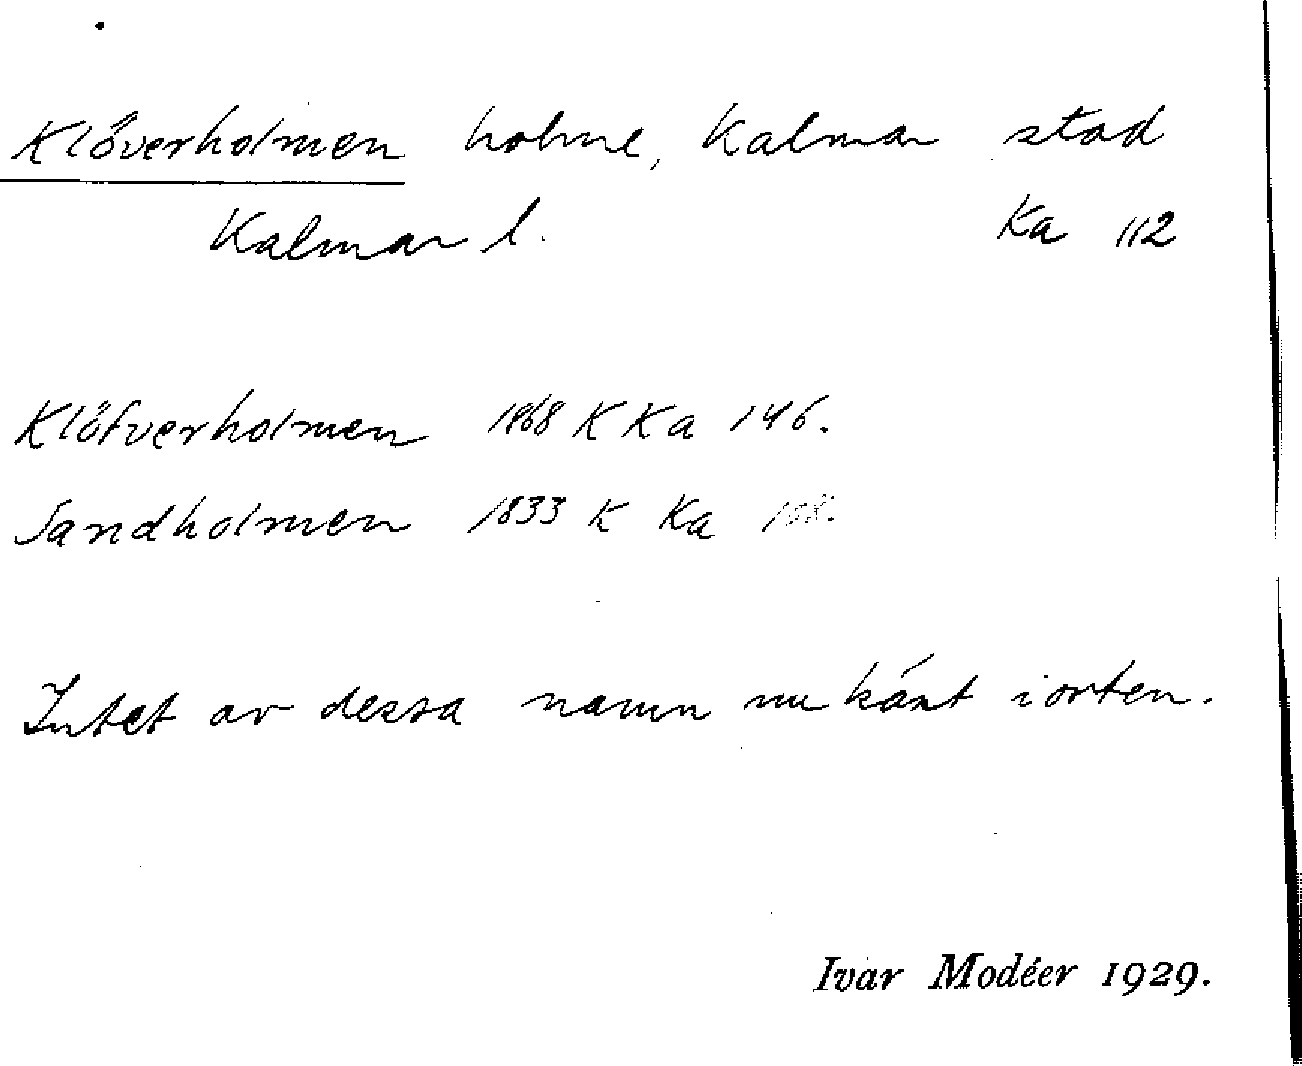 Klöverholmen holme, Kalmar stad
Kalmar l. Ka 112
Klöfverholmen 1868 K Ka 146.
Sandholmen 1833 K Ka 108.
Intet av dessa namn nu känt i orten.
Ivar Modéer 1929.